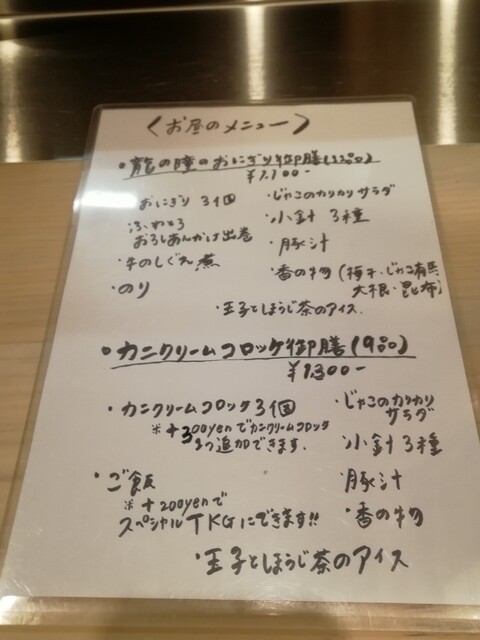 〈お昼のメニュー〉
・龍の瞳のおにぎり御膳(11品)
¥1,100-
おにぎり 3個
・じゃこのカリカリサラダ
ふわとろ
おろしあんかけ出巻
・小鉢 3種
・豚汁
・牛のしぐれ煮
・香の物(梅干・じゃこ有馬
大根・昆布)
・のり
・玉子とほうじ茶のアイス
・カニクリームコロッケ御膳(9品)
¥1,300-
・カニクリームコロッケ3個
※+300yenでカニクリームコロッケ
1つ追加できます.
・じゃこのカリカリ
サラダ
小鉢3種
・ご飯
※+200yenで
スペシャルTKGにできます!!
豚汁
・香の物
・玉子とほうじ茶のアイス